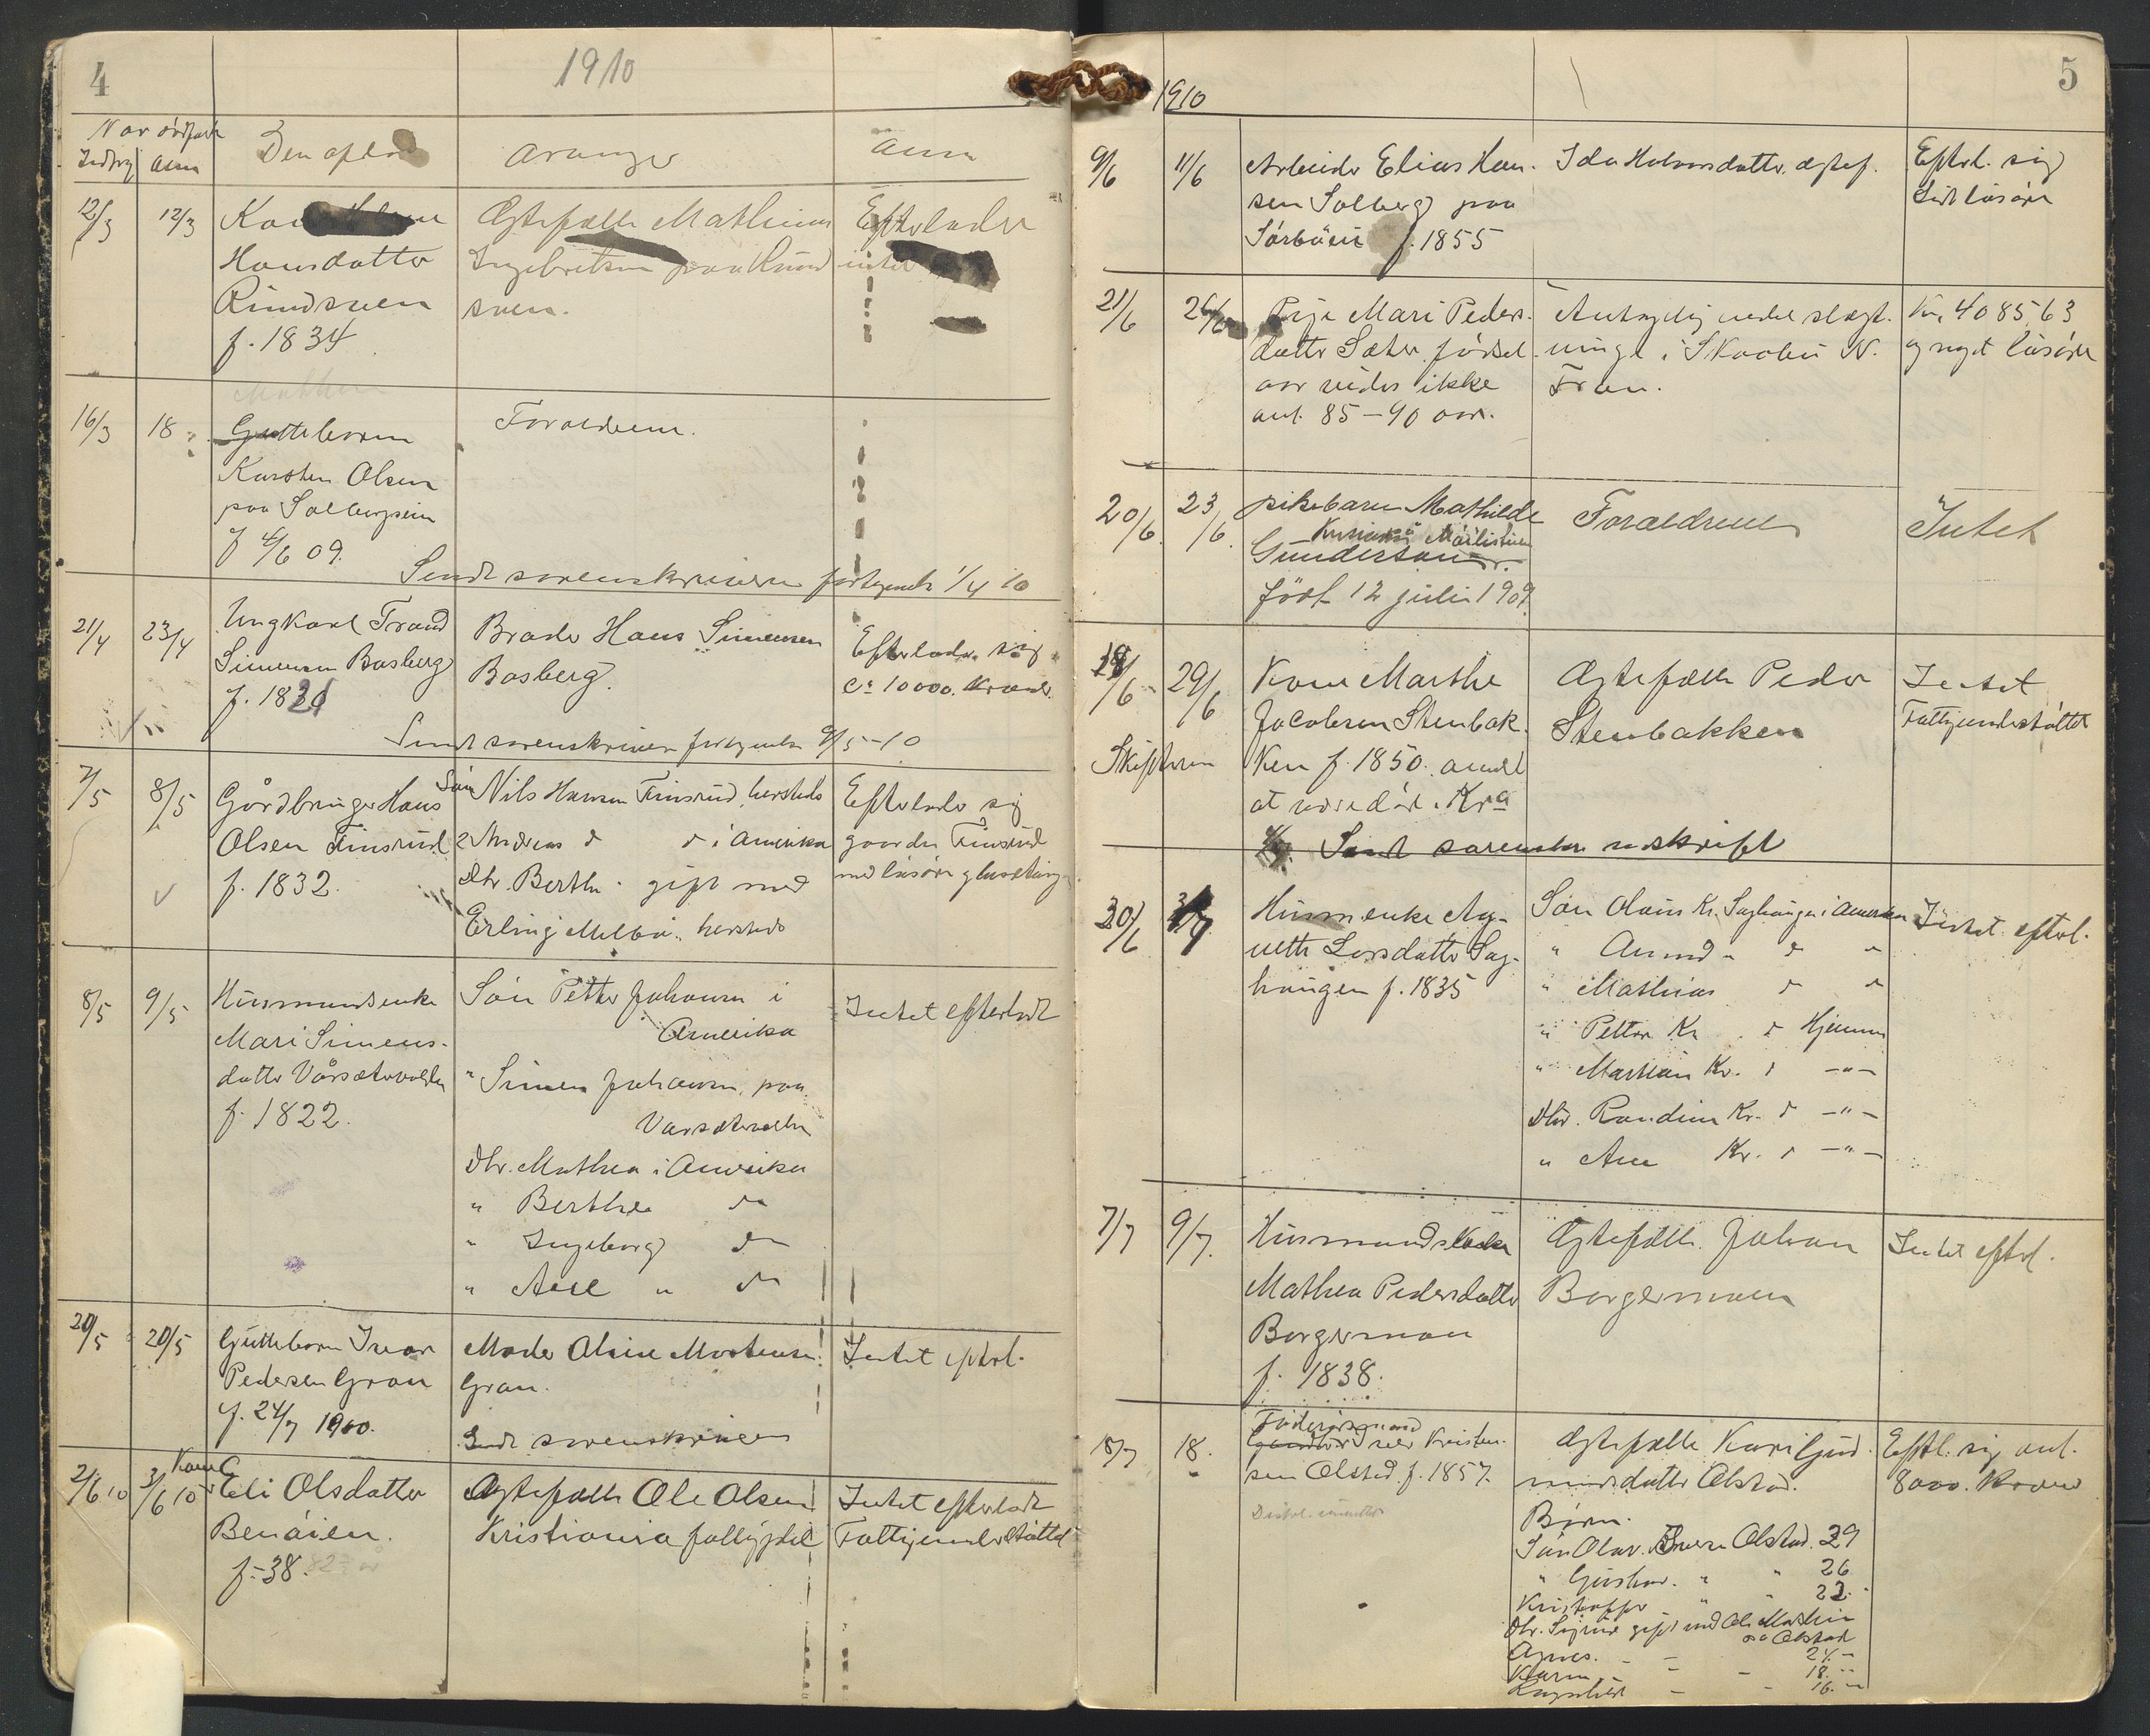 4
1910
Naar dödfaldet
Indtraf anm
Den afdöde
Arvinger
Anm
12/3 12/3 Kone
Hansdatter
Rundsveen
f. 1834
Ægtefælle Mathias
Ingebretsen paa Rund
sveen.
Efterlader
intet
16/3 18
Guttebarn
Karsten Olsen
paa Solbergseie
f 4/6 09.
Forældrene.
Sendt sorenskriveren fortegnelse 1/4 10
21/4 23/4
Ungkarl Trond
Simensen Basberg
f. 1821
Broder Hans Simensen
Basberg.
Efterlader sig
ca 10000 Kroner
Sendt sorenskriveren fortegnelse 9/5-10
7/5 8/5
Gårdbruger Hans
Olsen Finsrud
f. 1832.
Sön Nils Hansen Finsrud, hersteds
2 Andreas d d i Amerika
Dtr. Berthe gift med
Erling Melbÿ hersteds
Efterlader sig
gaarden Finsrud
med lösöre & besetning
8/5 9/5
Husmandsenke
Mari Simens-
datter Vårsætervolden
f. 1822.
Sön Petter Johansen i
Amerika
" Simen Johansen, paa
Varsætervolden
Dtr. Mathea i Amerika
" Berthea do
" Ingeborg do
" Anne " do
Intet efterladt
20/5 20/5
Guttebarn Ivar
Pedersen Gran
f. 24/7 1900.
Moder Oline Mortensen
Gran.
Sendt sorenskriveren
Intet efterl.
2/6 10 3/6 10
Kone
Eli Olsdatter
Benåien.
f.-38.
Ægtefælle Ole Olsen
Kristiania fattigpleie
Intet efterladt
Fattigunderstöttet
5
1910
9/6 11/6
Arbeider Elias Han-
sen Solberg paa
Sörbÿen f. 1855
Ida Halvorsdatter, ægtef.
Efterl. sig
Lidt lösöre
21/6 26/6
Pige Mari Peders-
datter Sæter. födsel-
aar vides ikke
ant. 85-90 aar.
Antagelig endel slægt-
ninge i Skaabu N.
Fron.
Kr. 4085,63
og noget lösöre
20/6. 23/6.
pikebarn Mathilde
Gundersen
födt 12 juli 1909.
Forældrene
Intet
18/6 29/6
Skifteren
Kone Marthe
Jacobsen Stenbak-
ken f. 1850. anmeldt
at være död i Kra
Ægtefælle Peder
Stenbakken
Intet
Fattigunderstöttet
Sendt sorenskr. udskrift
30/6 3/7
Husmenke Ag-
nethe Larsdatter Sag-
haugen f. 1835
Sön Olaus Kr. Saghaugen i Amerika
" Amund " d "
" Mathias d "
" Petter Kr. d Hjemme
" Martian Kr. d -"-
Dtr. Randine Kr. d -"-
" Ane Kr. d -"-
Intet efterl.
7/7 9/7.
Husmandskone
Mathea Pedersdatter
Borgermoen
f. 1838.
Ægtefælle. Johan
Borgermoen
Intet efterl.
15/7 18.
Föderaadsmand
Iver Kristen-
sen Olstad f. 1857.
Ægtefælle Kari Gud-
mundsdatter Olstad.
Börn.
Sön Olav. Iversen Olstad. 29
" Gustav. " " 26
Kristoffer " " 22.
Dtr. Sigrid gift med Ole Mathis
sø Olstad
Agnes. - - 24 -
Karen - - 18. -
Ragnhild - - 16. -
Efterl. sig ant.
8000. Kroner